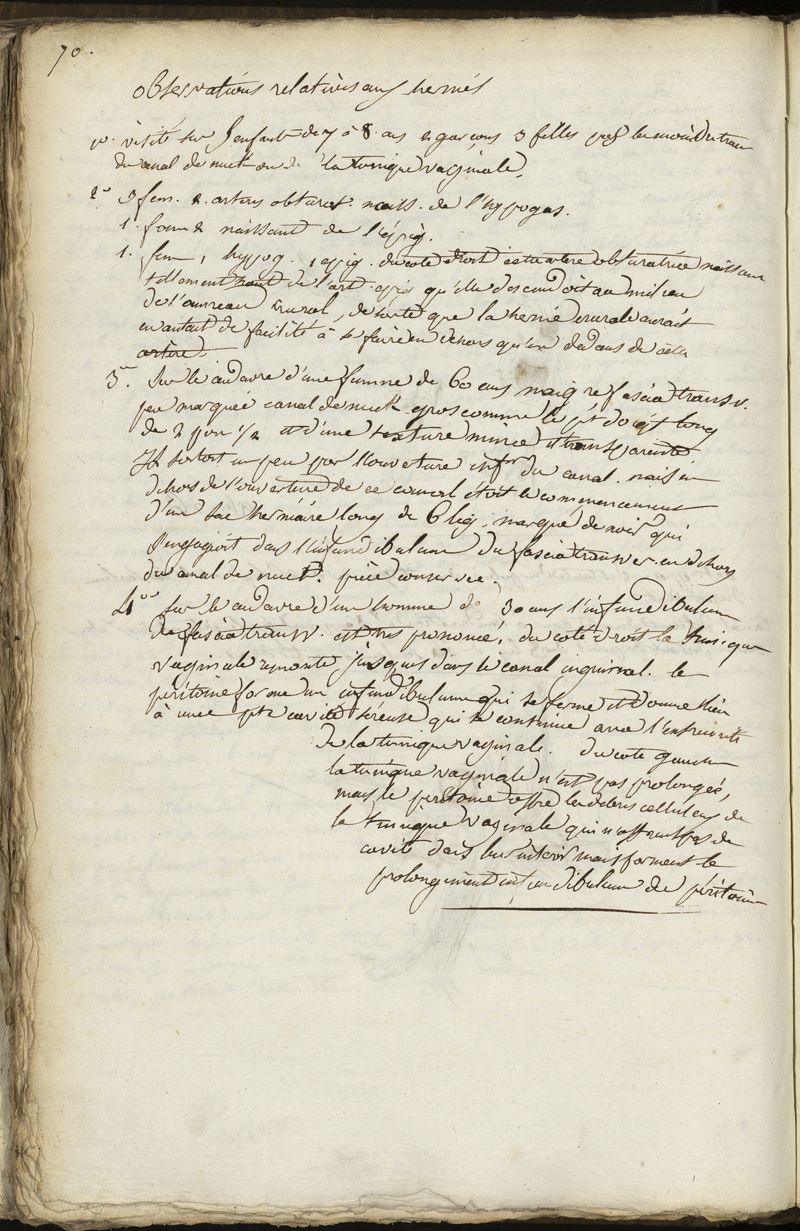 70.
observations relatives aux hernies
1º. visité sur 5 enfants de 7 à 8 ans 2 garçons 3 filles
du canal de nuck ou de la tunique vaginale.
2º 3 fem. 2. artères obturat. naiss. de l'hypogas.
1. fem 2 naissant de l'épig.
1. fem, 1 hypog. 1 epig. du coté droit cette artere obturatrice naissant
tellement de l'art. epig qu'elle descendoit au milieu
de l'anneau crural, de sorte que la hernie crurale auroit
eu autant de facilité à se faire en dehors qu'en dedans de cette
artère.
3º. Sur le cadavre d'une femme de 60 ans maigre fascia transv.
peu marquée canal de nuck gros comme le pt doigt long
de 2 pou 1/2 et d'une texture mince et transparente
Il sortoit un peu par l'ouverture infre du canal. mais en
dehors de l'ouverture de ce canal étoit le commencement
d'un sac herniaire long de 6 lig. marqué de noir qui
s'engagoit dans l'infundibulum du fascia transver. en dehors
du canal de nuck. pièce conservée.
4º Sur le cadavre d'un homme de 30 ans l'infundibulum
de fascia transv. est tres prononcé. du coté droit la tunique
vaginale remonte jusques dans le canal inguinal. le
péritoine forme un infundibulum qui se ferme et donne lieu
à une pte cavité séreuse qui se continue avec l'extremité
de la tunique vaginale. du coté gauche
la tunique vaginale n'est pas prolongée,
mais le peritoine offre les debris celluleux de
la tunique vaginale qui n'offrent pas de
cavité dans leur interieur mais forment le
prolongement infundibulum de péritoine